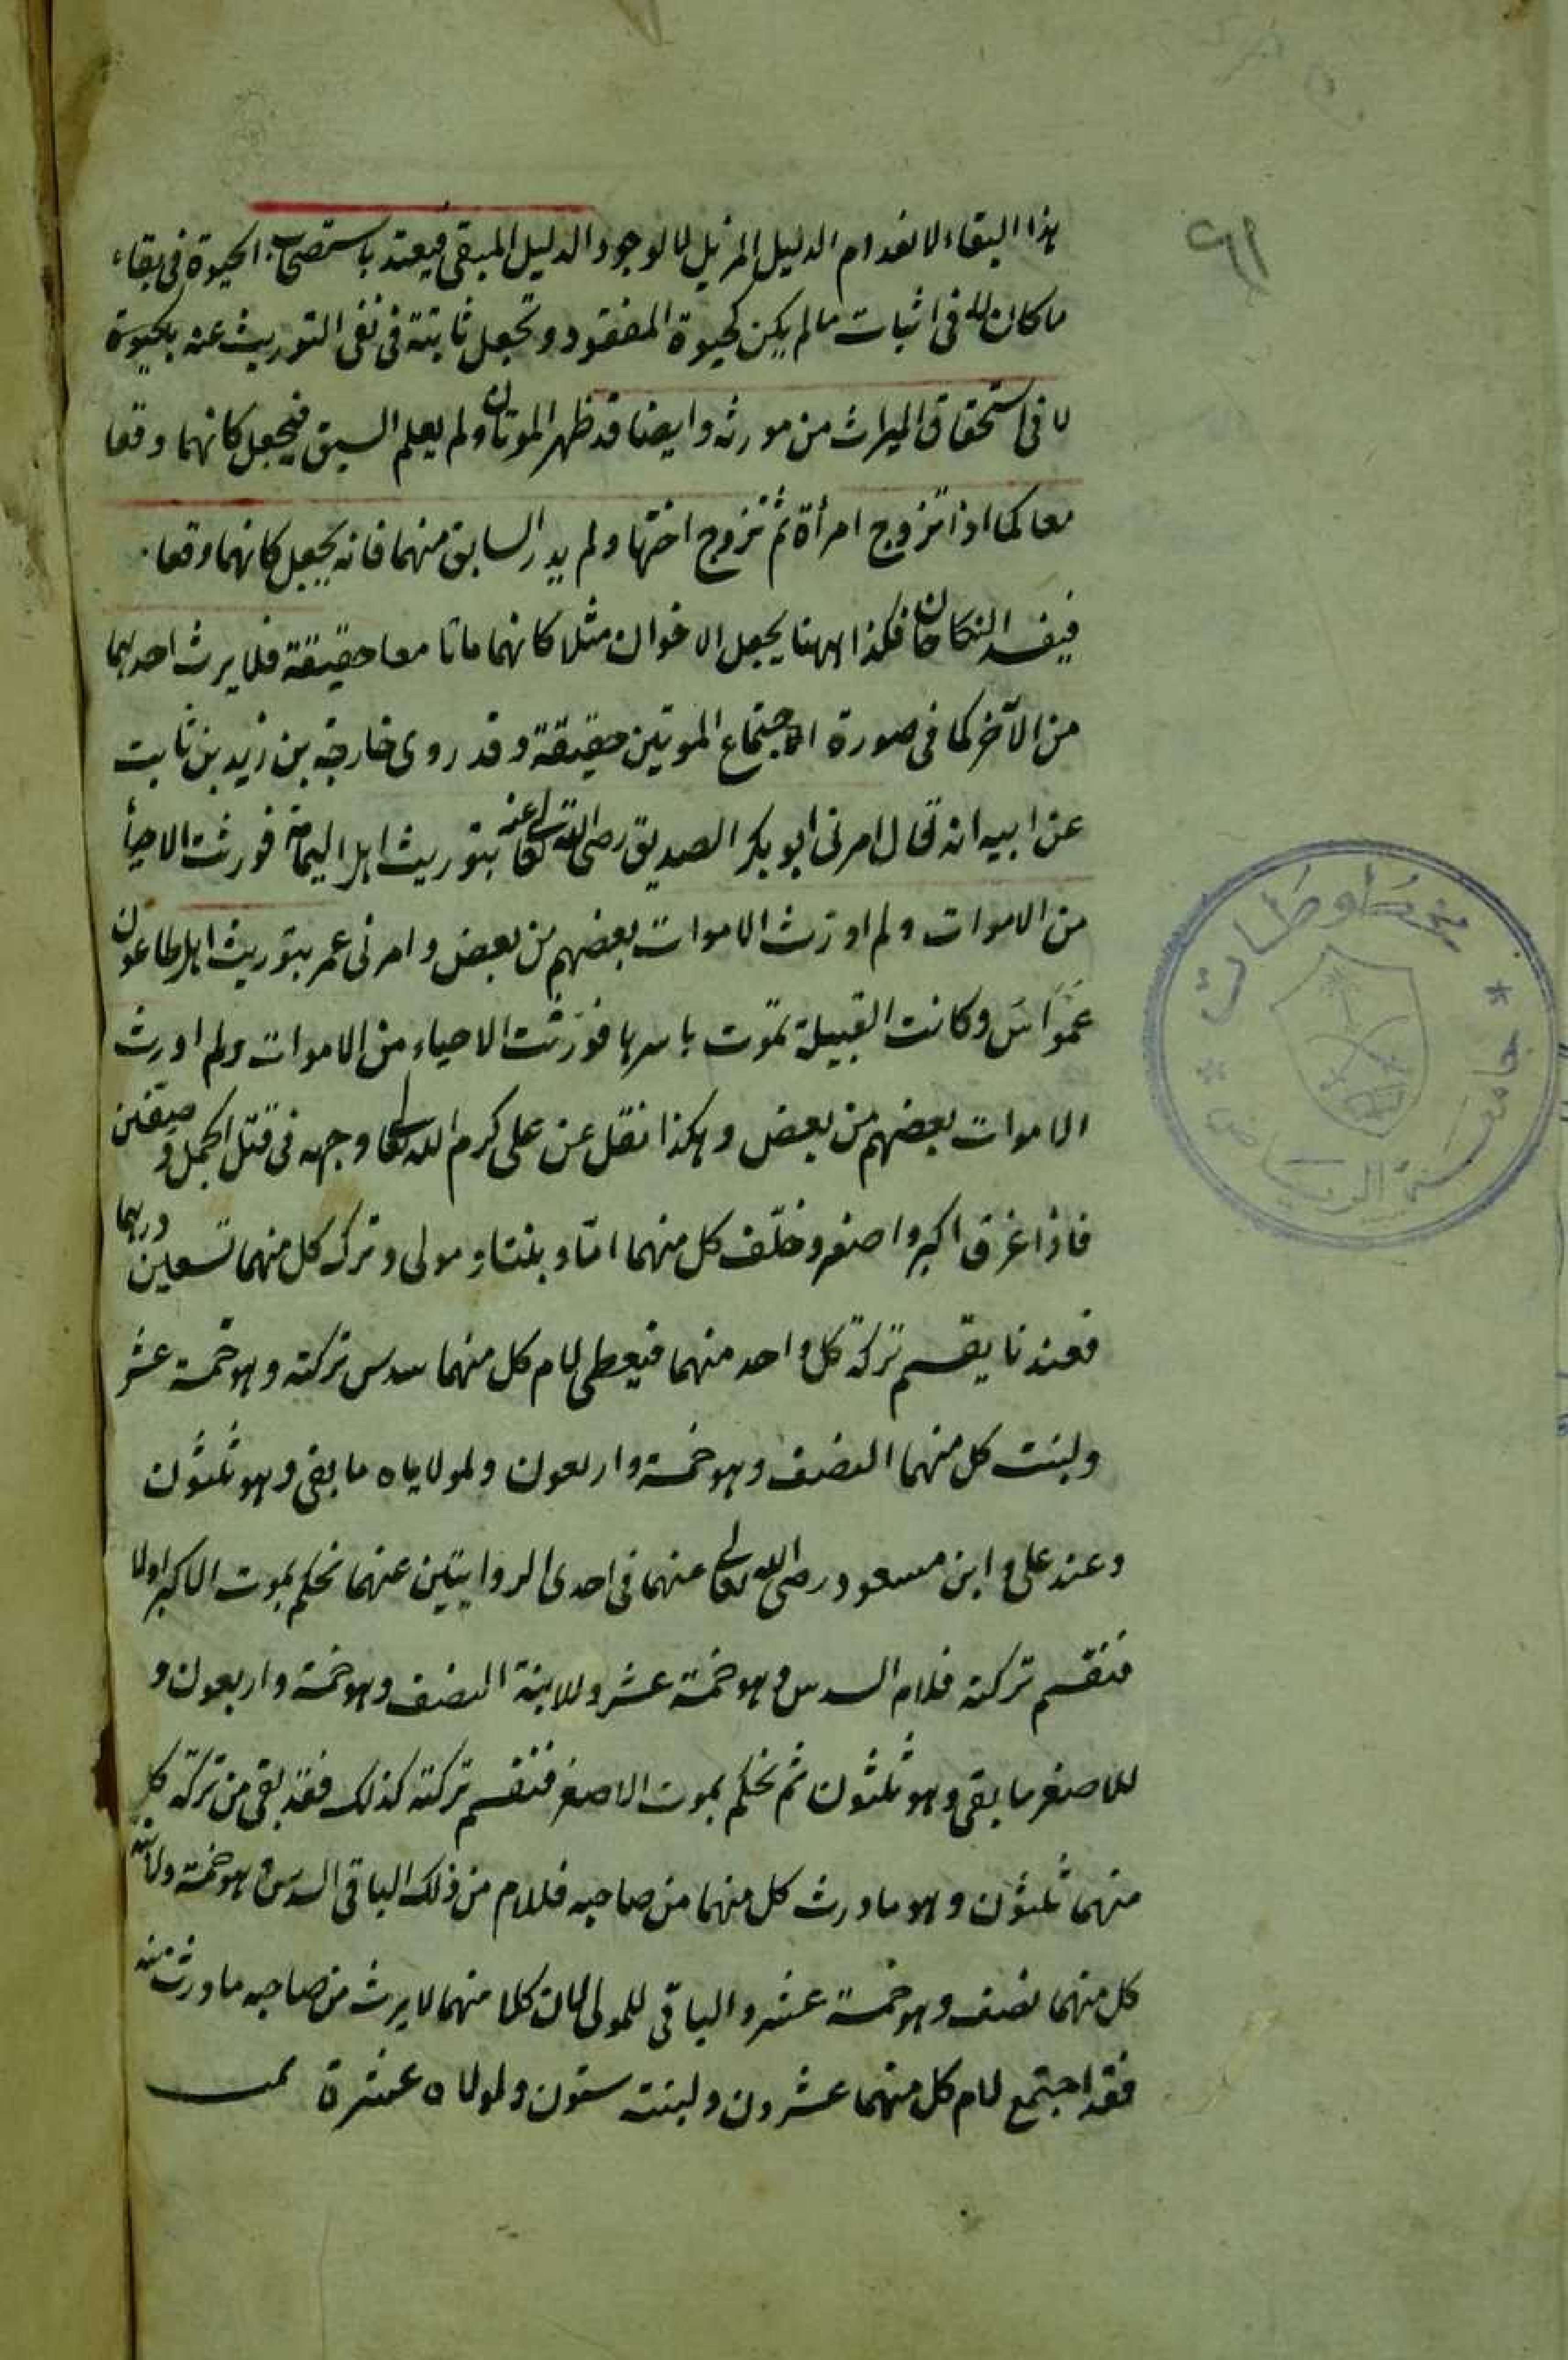 هذا البقاء لانعدام الدليل المزيل لا لوجود الدليل المبقى فيعتد باستصحاب الحيوة فى بقاء
ما كان لا فى اثبات ما لم يكن كحيوة المفقود وتجعل ثابتة فى نفى التوريث عنه كحيوة
لا فى استحقاق الميراث من مورثه وايضا قد ظهر الموتان ولم يعلم السبق فيجعل كانهما وقعا
معا كما اذا تزوج امرأة ثم تزوج اختها ولم يدر السابق منهما فانه يجعل كانهما وقعا
فيفسد النكاحان فكذا ههنا يجعل الاخوان مثلا كانهما ماتا معا حقيقة فلا يرث احدهما
من الآخر كما فى صورة اجتماع الموتين حقيقة وقد روى خارجة بن زيد بن ثابت
عن ابيه انه قال امرنى ابو بكر الصديق رضى الله تعالى عنه بتوريث اهل اليمامة فورثت الاحياء
من الاموات ولم اورث الاموات بعضهم من بعض وامرنى عمر بتوريث اهل طاعون
عَمَواس وكانت القبيلة تموت باسرها فورّثت الاحياء من الاموات ولم اورث
الاموات بعضهم من بعض وهكذا نقل عن على كرم الله تعالى وجهه فى قتل الجمل و صفين
فاذا غرق اكبر واصغر وخلّف كل منهما امّا وبنتا ومولى وترك كل منهما تسعين درهما
فعندنا يقسم تركة كل واحد منهما فيعطى لام كل منهما سدس تركته وهو خمسة عشر
ولبنت كل منهما النصف وهو خمسة واربعون ولمولاياه ما بقى وهو ثلثون
وعند على وابن مسعود رضى الله تعالى عنهما فى احدى الروايتين عنهما نحكم بموت الاكبر اولا
فتقسم تركته فلام السدس وهو خمسة عشر وللابنة النصف وهو خمسة واربعون و
للاصغر ما بقى وهو ثلثون ثم نحكم بموت الاصغر فتقسم تركته كذلك فقد بقى من تركة كل
منهما ثلثون وهو ما ورث كل منهما من صاحبه فللام من ذلك الباقى السدس وهو خمسة ولابنة
كل منهما نصف وهو خمسة عشر والباقى للمولى لان كلا منهما لا يرث من صاحبه ما ورث منه
فقد اجتمع لام كل منهما عشرون ولبنته ستون ولمولاه عشرة
٦١
مخطوطات
جامعة الرياض